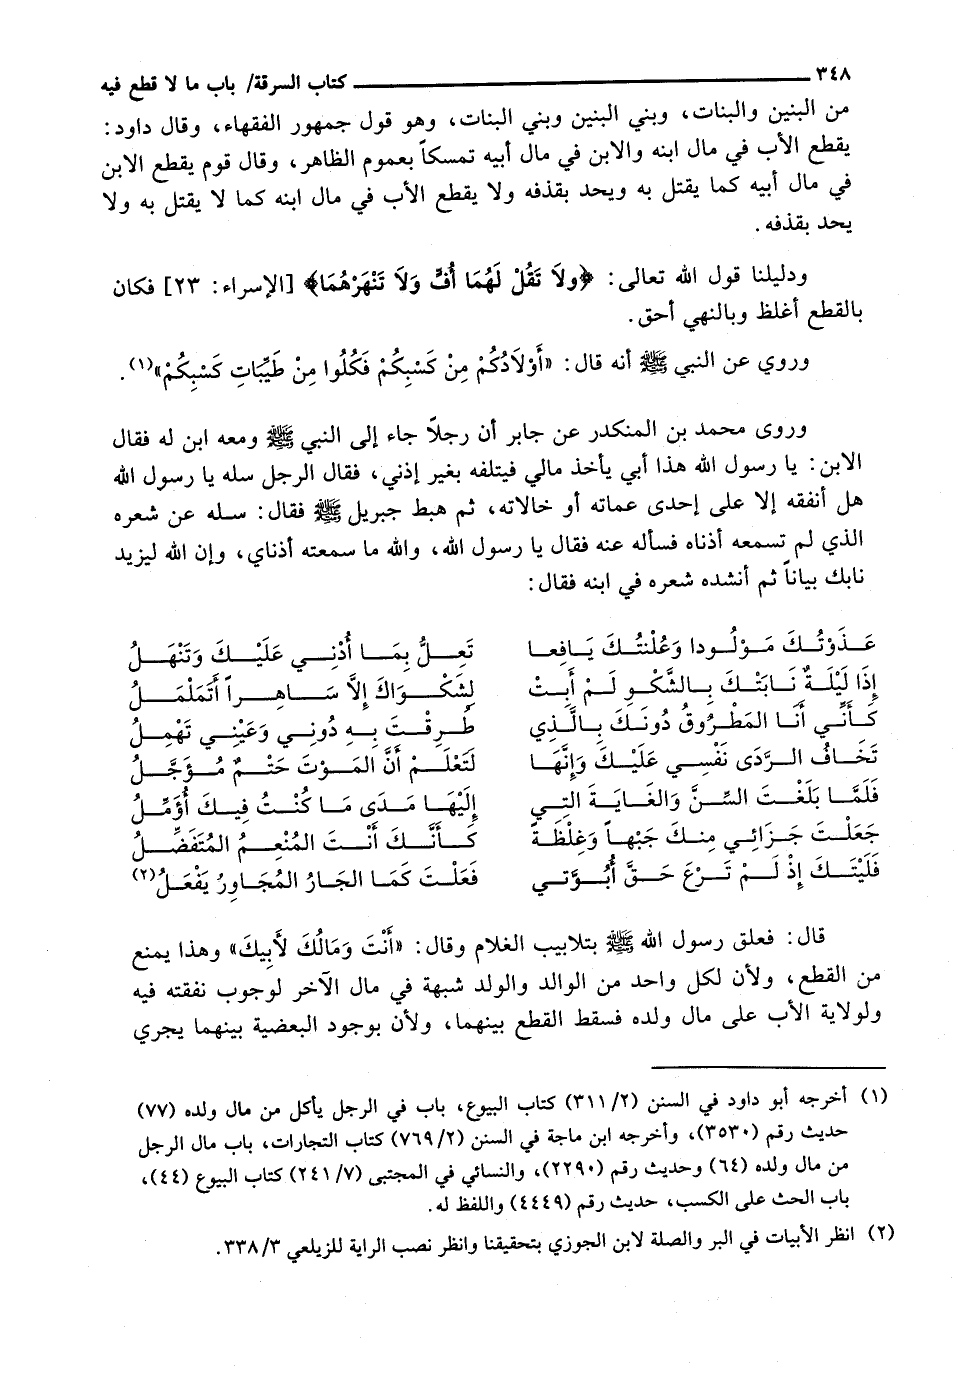 ٣٤٨ كتاب السرقة/ باب ما لا قطع فيه
من البنين والبنات، وبني البنين وبني البنات، وهو قول جمهور الفقهاء، وقال داود:
يقطع الأب في مال ابنه والابن في مال أبيه تمسكاً بعموم الظاهر، وقال قوم يقطع الابن
في مال أبيه كما يقتل به ويحد بقذفه ولا يقطع الأب في مال ابنه كما لا يقتل به ولا
يحد بقذفه.
ودليلنا قول الله تعالى: ﴿ولَا تَقُلْ لَهُمَا أُفٍّ وَلَا تَنْهَرْهُمَا﴾ [الإسراء: ٢٣] فكان
بالقطع أغلظ وبالنهي أحق.
وروي عن النبي ﷺ أنه قال: «أَوْلَادُكُمْ مِنْ كَسْبِكُمْ فَكُلُوا مِنْ طَيِّبَاتِ كَسْبِكُمْ»(١).
وروى محمد بن المنكدر عن جابر أن رجلاً جاء إلى النبي ﷺ ومعه ابن له فقال
الابن: يا رسول الله هذا أبي يأخذ مالي فيتلفه بغير إذني، فقال الرجل سله يا رسول الله
هل أنفقه إلا على إحدى عماته أو خالاته، ثم هبط جبريل ﷺ فقال: سله عن شعره
الذي لم تسمعه أذناه فسأله عنه فقال يا رسول الله، والله ما سمعته أذناي، وإن الله ليزيد
نابك بياناً ثم أنشده شعره في ابنه فقال:
غَذَوْتُكَ مَوْلُودا وَعُلْتُكَ يَافِعا تَعِلُّ بِمَا أُدْنِي عَلَيْكَ وَتَنْهَلُ
إِذَا لَيْلَةٌ نَابَتْكَ بِالشَّكْوِ لَمْ أَبِتْ لِشَكْوَاكَ إِلَّا سَاهِراً أَتَمَلْمَلُ
كَأَنِّي أَنَا المَطْرُوقُ دُونَكَ بِالَّذِي طُرِقْتَ بِهِ دُونِي وَعَيْنِي تَهْمِلُ
تَخَافُ الرَّدَى نَفْسِي عَلَيْكَ وَإِنَّهَا لَتَعْلَمْ أَنَّ المَوْتَ حَتْمٌ مُؤَجَّلُ
فَلَمَّا بَلَغْتَ السِّنَّ وَالغَايَةَ التِي إِلَيْهَا مَدَى مَا كُنْتُ فِيكَ أُؤَمِّلُ
جَعَلْتَ جَزَائِي مِنكَ جَبْهاً وَغِلْظَةً كَأَنَّكَ أَنْتَ المُنْعِمُ المُتَفَضِّلُ
فَلَيْتَكَ إِذْ لَمْ تَرْعَ حَقَّ أُبُوَّتي فَعَلْتَ كَمَا الجَارُ المُجَاوِرُ يَفْعَلُ(٢)
قال: فعلق رسول الله ﷺ بتلابيب الغلام وقال: «أَنْتَ وَمَالُكَ لأَبِيكَ» وهذا يمنع
من القطع، ولأن لكل واحد من الوالد والولد شبهة في مال الآخر لوجوب نفقته فيه
ولولاية الأب على مال ولده فسقط القطع بينهما، ولأن بوجود البعضية بينهما يجري
(١) أخرجه أبو داود في السنن (٣١١/٢) كتاب البيوع، باب في الرجل يأكل من مال ولده (٧٧)
حديث رقم (٣٥٣٠)، وأخرجه ابن ماجة في السنن (٧٦٩/٢) كتاب التجارات، باب مال الرجل
من مال ولده (٦٤) وحديث رقم (٢٢٩٠)، والنسائي في المجتبى (٢٤١/٧) كتاب البيوع (٤٤)،
باب الحث على الكسب، حديث رقم (٤٤٤٩) واللفظ له.
(٢) انظر الأبيات في البر والصلة لابن الجوزي بتحقيقنا وانظر نصب الراية للزيلعي ٣٣٨/٣.